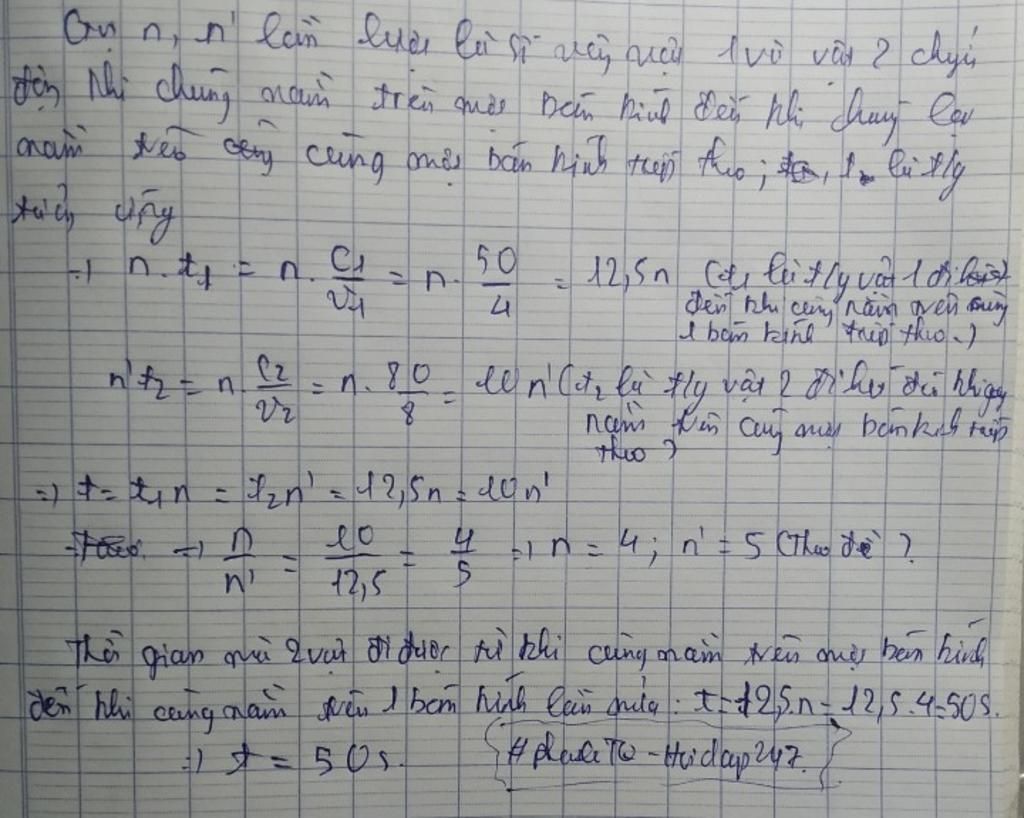 Gọi n, n' lần lượt là số vòng vật 1 và vật 2 chuyển
động khi chúng nằm trên một bán kính đến khi chúng lại
nằm trên cùng một bán kính tiếp theo; t2 là t/g
tương ứng
=> n.t1 = n.C1/V1 = n.50/4 = 12,5n (t1 là t/g vật 1 đi
đến khi cùng nằm trên cùng
1 bán kính tiếp theo.)
n't2 = n.C2/V2 = n.80/8 = 10n' (t2 là t/g vật 2 đi đến khi
nằm trên cùng một bán kính tiếp
theo)
=> t = t1n = t2n' = 12,5n = 10n'
=> n/n' = 10/12,5 = 4/5 => n = 4; n' = 5 (Theo đề)
Thời gian mà 2 vật đi được từ khi cùng nằm trên một bán kính
đến khi cùng nằm trên 1 bán kính lần nữa: t = 12,5.n = 12,5.4 = 50s.
=> t = 50s.
-Hoidap247